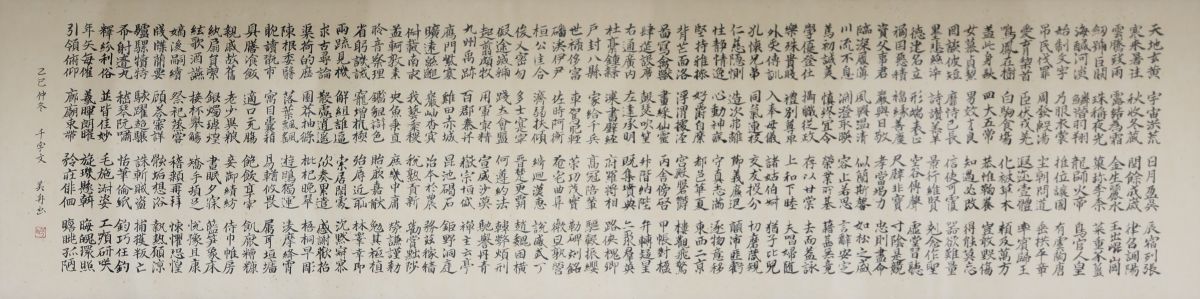 天地玄黃宇宙洪荒日月盈昃辰宿列張
寒來暑往秋收冬藏閏餘成歲律召調陽
雲騰致雨露結為霜金生麗水玉出崑岡
劍號巨闕珠稱夜光菓珍李柰菜重芥薑
海鹹河淡鱗潛羽翔龍師火帝鳥官人皇
始制文字乃服衣裳推位讓國有虞陶唐
弔民伐罪周發殷湯坐朝問道垂拱平章
愛育黎首臣伏戎羌遐邇壹體率賓歸王
鳴鳳在樹白駒食場化被草木賴及萬方
蓋此身髮四大五常恭惟鞠養豈敢毀傷
女慕貞絜男效才良知過必改得能莫忘
罔談彼短靡恃己長信使可覆器欲難量
墨悲絲淬詩讚羔羊景行維賢剋念作聖
德建名立形端表正空谷傳聲虛堂習聽
禍因惡積福緣善慶尺璧非寶寸陰是競
資父事君曰嚴與敬孝當竭力忠則盡命
臨深履薄夙興溫凊似蘭斯馨如松之盛
川流不息淵澄取映容止若思言辭安定
篤初誠美慎終宜令榮業所基籍甚無竟
學優登仕攝職從政存以甘棠去而益詠
樂殊貴賤禮別尊卑上和下睦夫唱婦隨
外受傅訓入奉母儀諸姑伯叔猶子比兒
孔懷兄弟同氣連枝交友投分切磨箴規
仁慈隱惻造次弗離節義廉退顛沛匪虧
性靜情逸心動神疲守真志滿逐物意移
堅持雅操好爵自縻都邑華夏東西二京
背芒面洛浮渭據涇宮殿盤鬱樓觀飛驚
圖寫禽獸畫綵仙靈丙舍傍啟甲帳對楹
肆筵設席鼓瑟吹笙升階納陛弁轉疑星
右通廣內左達承明既集墳典亦聚群英
杜稾鍾隸漆書壁經府羅將相路俠槐卿
戶封八縣家給千兵高冠陪輦驅轂振纓
世祿侈富車駕肥輕策功茂實勒碑刻銘
磻溪伊尹佐時阿衡奄宅曲阜微旦孰營
桓公匡合濟弱扶傾綺迴漢惠說感武丁
俊乂密勿多士寔寧晉楚更霸趙魏困橫
假途滅虢踐土會盟何遵約法韓弊煩刑
起翦頗牧用軍最精宣威沙漠馳譽丹青
九州禹跡百郡秦并嶽宗恒岱禪主云亭
雁門紫塞雞田赤城昆池碣石鉅野洞庭
曠遠綿邈巖岫杳冥治本於農務茲稼穡
俶載南畝我藝黍稷稅熟貢新勸賞黜陟
孟軻敦素史魚秉直庶幾中庸勞謙謹勅
聆音察理鑑貌辨色貽厥嘉猷勉其祗植
省躬譏誡寵增抗極殆辱近恥林皋幸即
兩疏見機解組誰逼索居閒處沉默寂寥
求古尋論散慮逍遙欣奏累遣慼謝歡招
渠荷的歷園莽抽條枇杷晚翠梧桐早凋
陳根委翳落葉飄颻遊鵾獨運凌摩絳霄
耽讀翫市寓目囊箱易輶攸畏屬耳垣牆
具膳飡飯適口充腸飽飫烹宰飢厭糟糠
親戚故舊老少異糧妾御績紡侍巾帷房
紈扇圓潔銀燭煒煌晝眠夕寐藍筍象床
絃歌酒讌接杯舉觴矯手頓足悅豫且康
嫡後嗣續祭祀蒸嘗稽顙再拜悚懼恐惶
牋牒簡要顧答審詳骸垢想浴執熱願涼
驢騾犢特駭躍超驤誅斬賊盜捕獲叛亡
布射遼丸嵇琴阮嘯恬筆倫紙鈞巧任釣
釋紛利俗並皆佳妙毛施淑姿工顰妍笑
年矢每催曦暉朗曜旋璣懸斡晦魄環照
引領俯仰廊廟束帶矜莊徘徊瞻眺孤陋
己巳仲冬 千字文